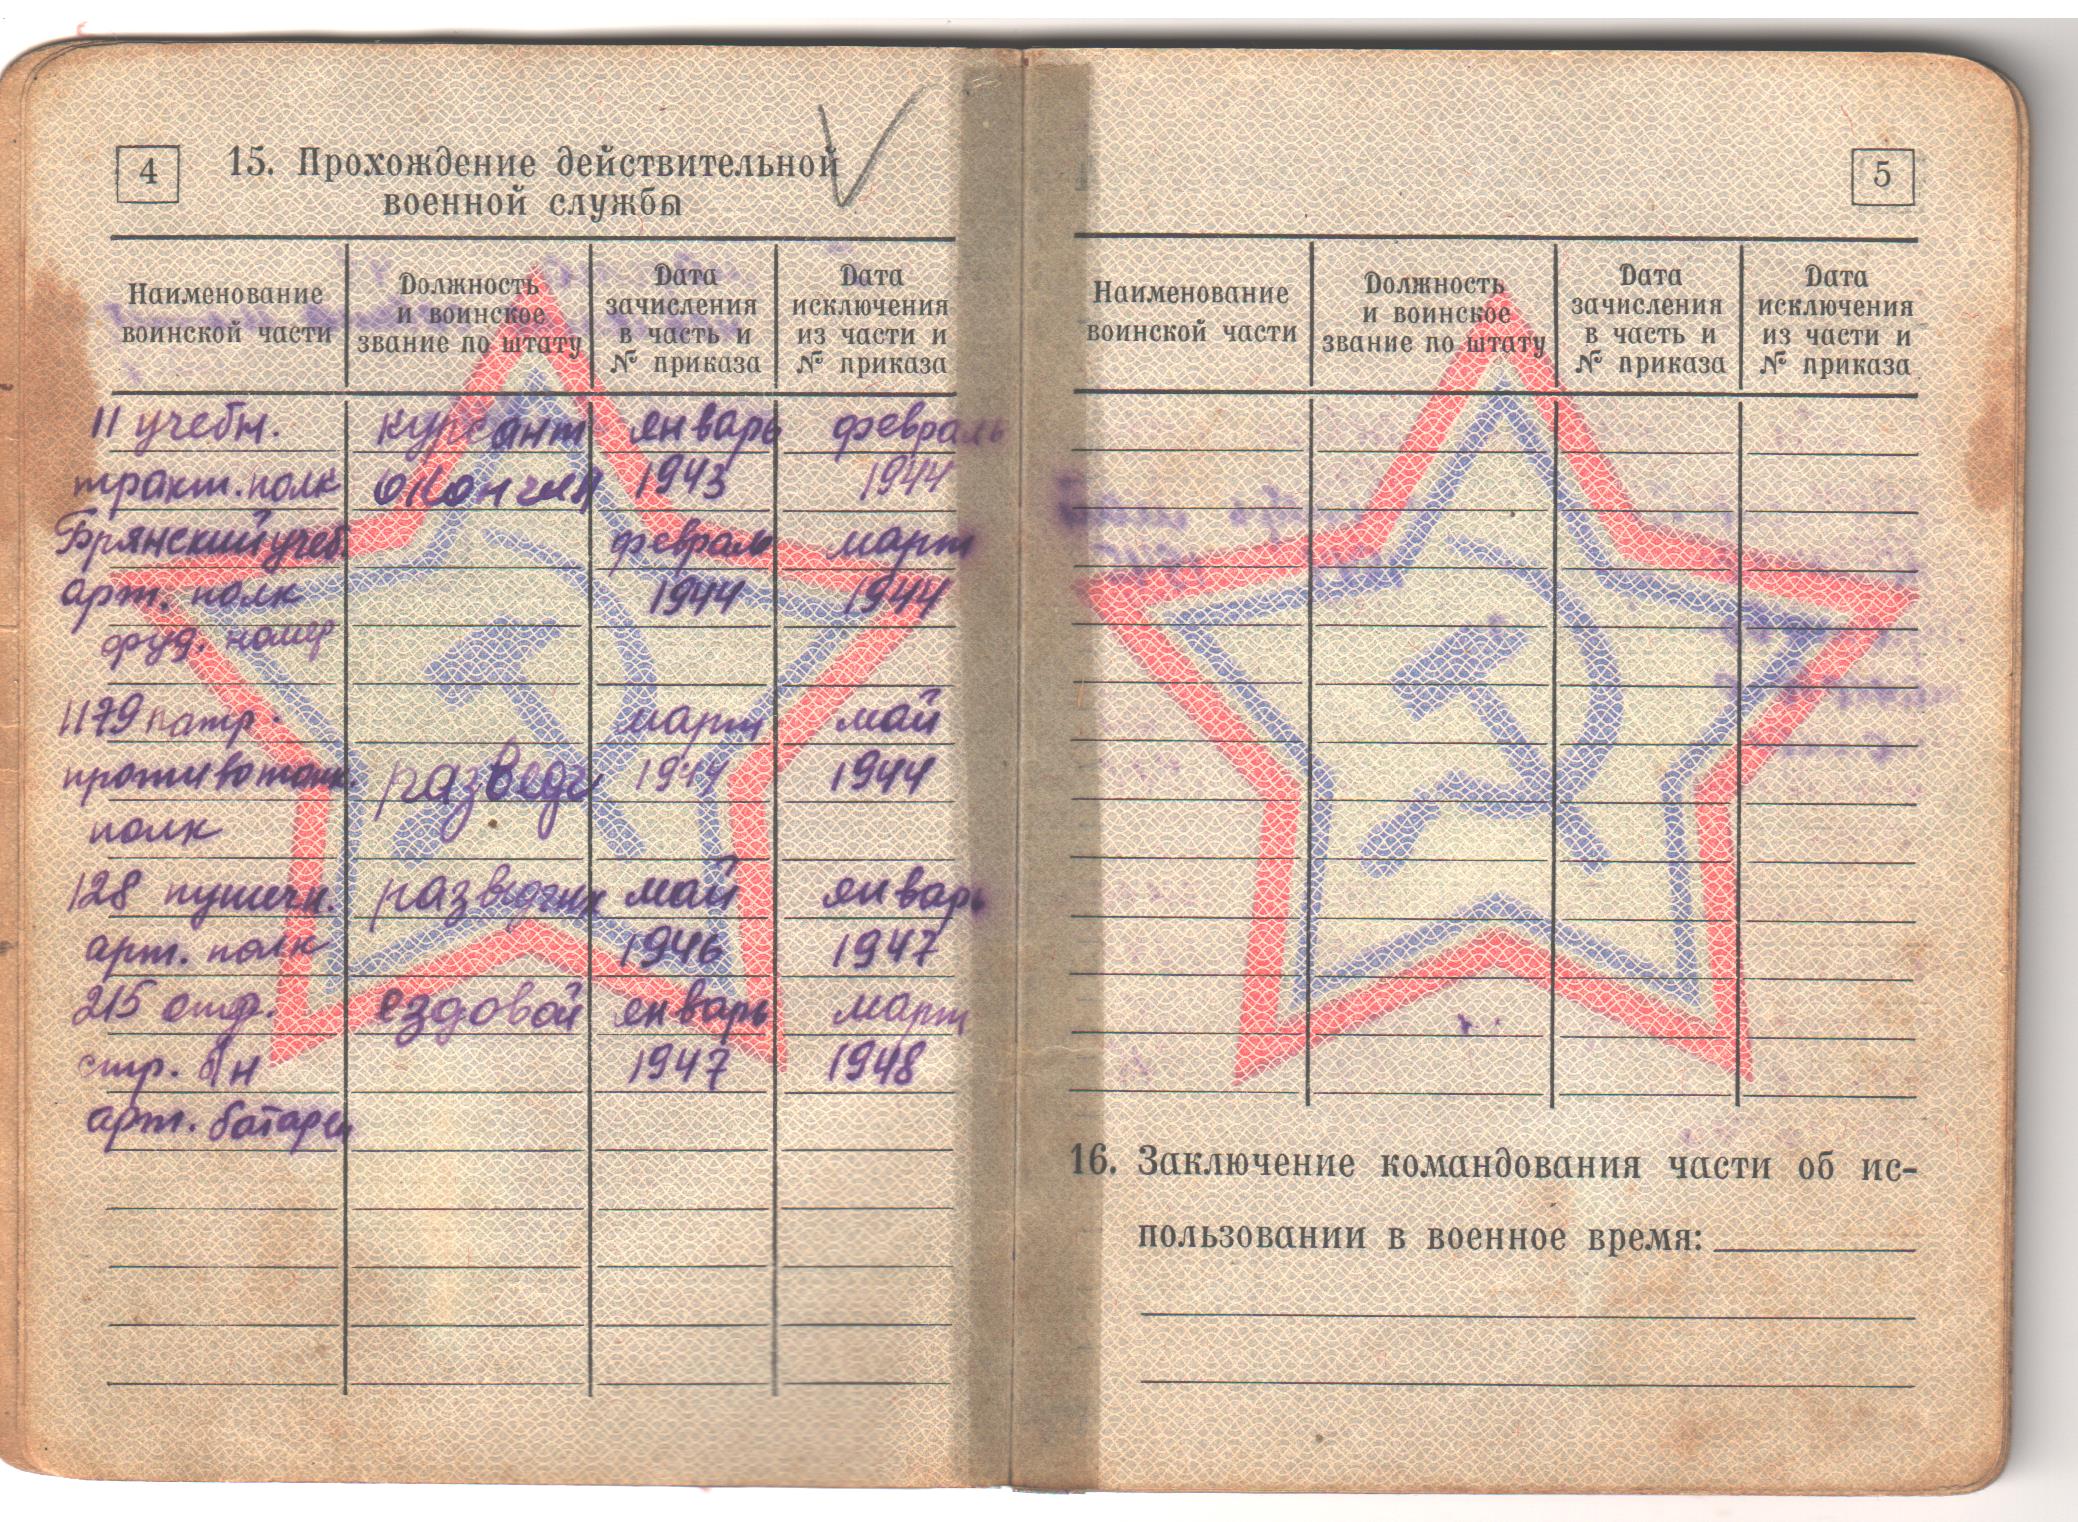 4
15. Прохождение действительной
военной службы
Наименование
воинской части
Должность
и воинское
звание по штату
Дата
зачисления
в часть и
№ приказа
Дата
исключения
из части и
№ приказа
11 учебн. курсант январь февраль
тракт. полк 1943 1944
Брянский учеб. февраль март
арт. полк 1944 1944
номер
1179 март май
противотанк. разведч 1944 1944
полк
128 пушечн. разведчик май январь
арт. полк 1946 1947
215 отд. ездовой январь март
стр. бн 1947 1948
арт. батарея
5
Наименование
воинской части
Должность
и воинское
звание по штату
Дата
зачисления
в часть и
№ приказа
Дата
исключения
из части и
№ приказа
16. Заключение командования части об ис-
пользовании в военное время: